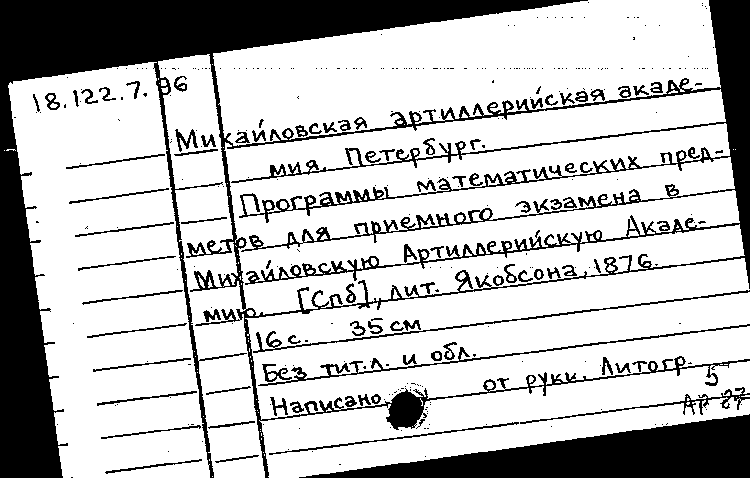 18.122.7.96
Михайловская артиллерийская акаде-
мия. Петербург.
Программы математических пред-
метов для приемного экзамена в
Михайловскую Артиллерийскую Акаде-
мию. [Спб], лит. Якобсона, 1876.
16 с. 35 см
Без тит.л. и обл.
Написано от руки. Литогр.
5
АР 27